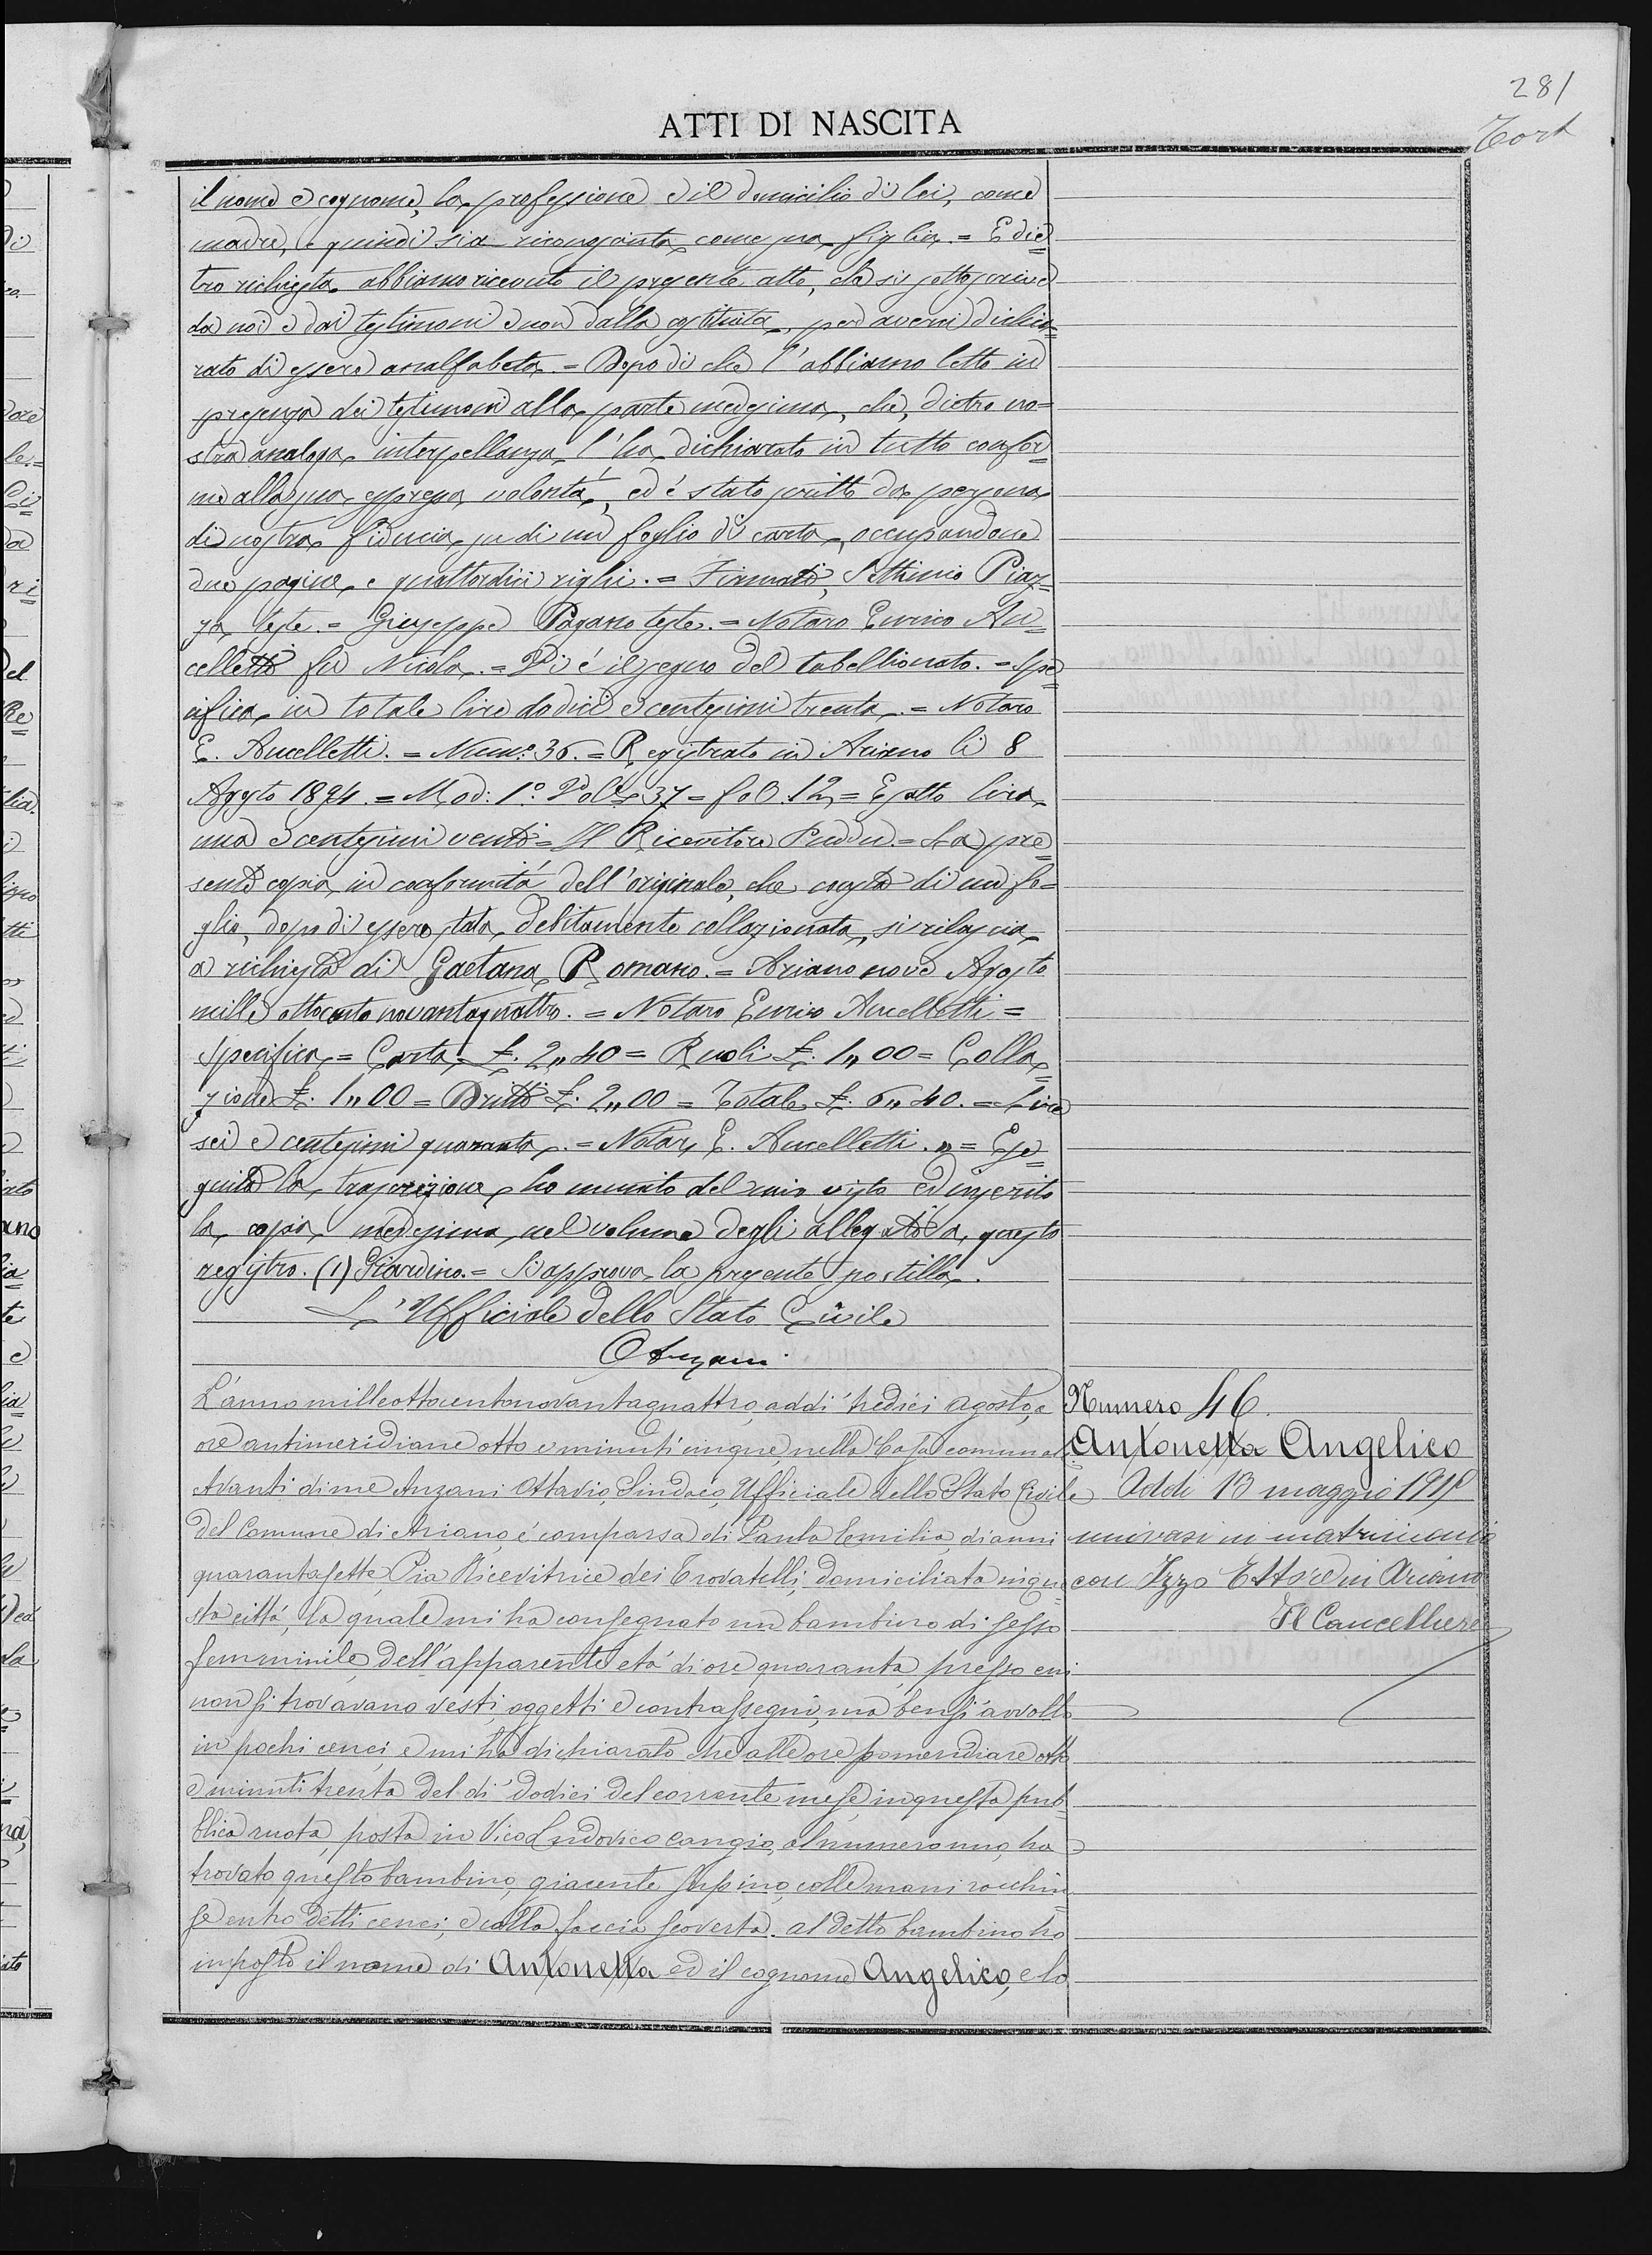 281
ATTI DI NASCITA
il nome e cognome, la professione e il domicilio di lei, come
madre, e quindi sia riconosciuta come sua figlia. = E die=
tro richiesta abbiamo ricevuto il presente atto, che si sottoscrive
da noi e dai testimoni e non dalla costituita, per averci dichia=
rato di essere analfabeta. = Dopo di che l'abbiamo letto in
presenza dei testimoni alla parte medesima, che, dietro no=
stra analoga interpellanza, l'ha dichiarato in tutto confor=
me alla sua espressa volontá, ed é stato scritto da persona
di nostra fiducia su di un foglio di carta, occupandone
due pagine e quattordici righi. = Firmati, Settimio Piaz=
za teste. = Giuseppe Pagano teste. = Notaro Enrico Au=
celletti fu Nicola. = Vi é il segno del tabellionato. = Spe=
cifica in totale lire dodici e centesimi trenta. = Notaro
E. Aucelletti. = Num.º 36. = Registrato in Ariano li 8
Agosto 1894. = Mod: 1º Vol. 37 = fol. 12, = Esatto lira
una e centesimi venti = Il Ricevitore Puddu. = La pre=
sente copia in conformitá dell'originale, che consta di un fo=
glio, dopo di essere stata debitamente collazionata, si rilascia
a richiesta di Gaetana Romano. = Ariano nove Agosto
mille ottocento novantaquattro. = Notaro Enrico Aucelletti =
Specifica = Carta £. 2,,40 = Ruoli £. 1,,00 = Colla=
zione £. 1,,00 = Dritto £. 2,,00 = Totale £. 6,,40. = Lire
sei e centesimi quaranta. = Notar E. Aucelletti. » = Ese=
guita la trascrizione, ho munito del mio visto ed inserito
la copia medesima nel volume degli allegati a questo
registro. (1) Giardino. = Si approva la presente postilla.
L'Ufficiale dello Stato Civile
O Anzani
L'anno milleottocentonovantaquattro, addi' tredici Agosto, a
ore antimeridiane otto e minuti cinque, nella Casa comunale.
Avanti di me Anzani Ottavio, Sindaco, Ufficiale dello Stato Civile
del Comune di Ariano, é comparsa di Santo Emilia, di anni
quarantasette, Pia Ricevitrice dei Trovatelli, domiciliata in que=
sta cittá, la quale mi ha consegnato un bambino di sesso
femminile, dell'apparente etá di ore quaranta, presso cui
non si trovavano vesti, oggetti e contrassegni, ma bensí avvolto
in pochi cenci, e mi ha dichiarato che alle ore pomeridiane otto
e minuti trenta del di' dodici del corrente mese, in questa pub=
blica ruota, posta in Vico Ludovico Cangio, al numero uno, ha
trovato questo bambino, giacente supino, colle mani racchiu=
se entro detti cenci, e colla faccia scoverta. Al detto bambino ho
imposto il nome di Antonetta ed il cognome Angelico, e lo
Numero 46.
Antonetta Angelico
Addi 13 maggio 1915
univasi in matrimonio
con Izzo Ettore in Ariano
Il Cancelliere